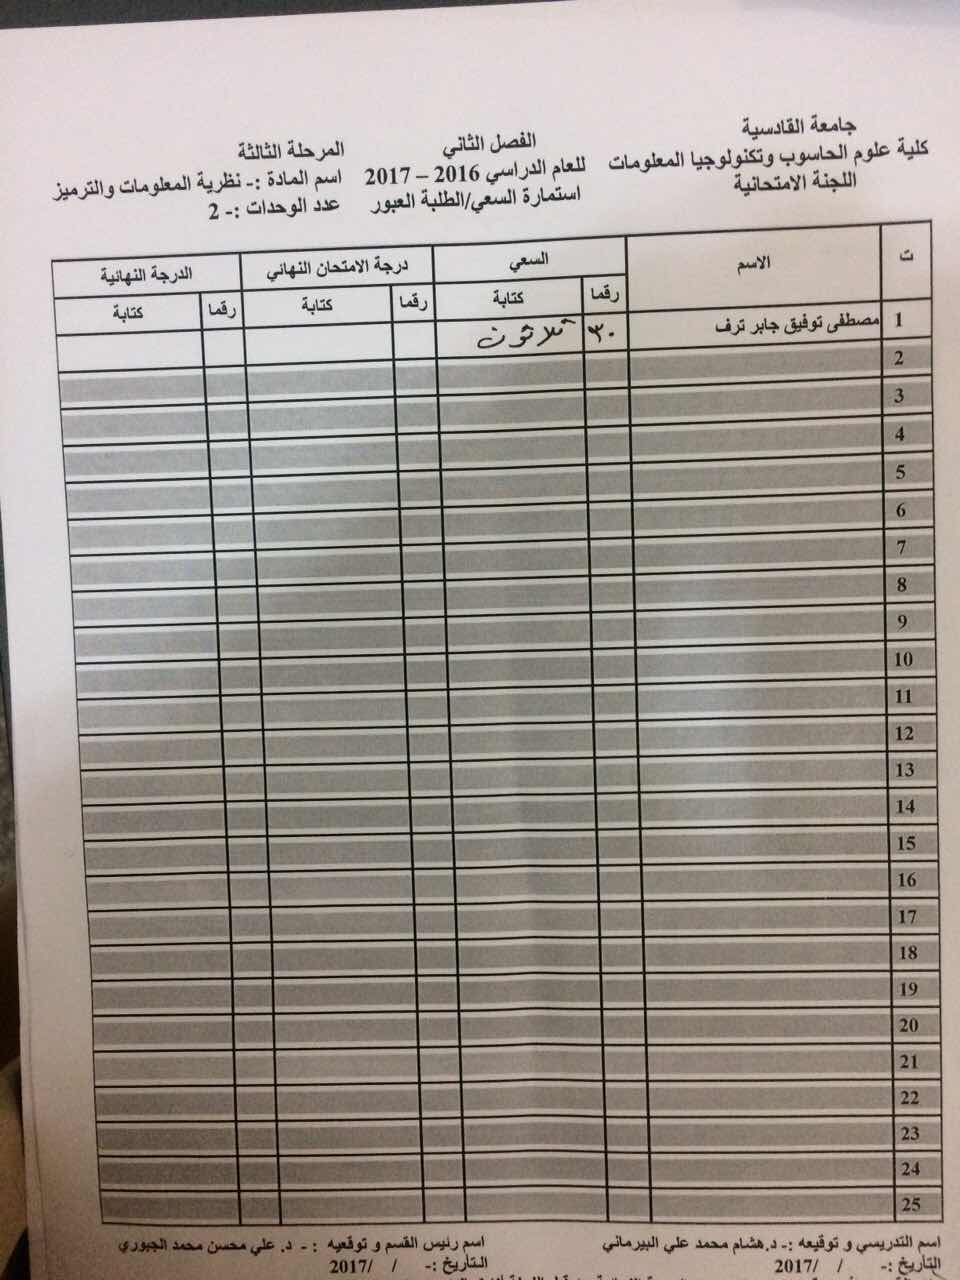 جامعة القادسية
كلية علوم الحاسوب وتكنولوجيا المعلومات
اللجنة الامتحانية
الفصل الثاني
للعام الدراسي 2016 – 2017
استمارة السعي/الطلبة العبور
المرحلة الثالثة
اسم المادة :- نظرية المعلومات والترميز
عدد الوحدات :- 2
ت الاسم السعي درجة الامتحان النهائي الدرجة النهائية
رقما كتابة رقما كتابة رقما كتابة
1 مصطفى توفيق جابر ترف ٣٠ ثلاثون
2
3
4
5
6
7
8
9
10
11
12
13
14
15
16
17
18
19
20
21
22
23
24
25
اسم التدريسي و توقيعه :- د.هشام محمد علي البيرماني
التأريخ :- / / 2017
اسم رئيس القسم و توقعيه :- د. علي محسن محمد الجبوري
التأريخ :- / / 2017